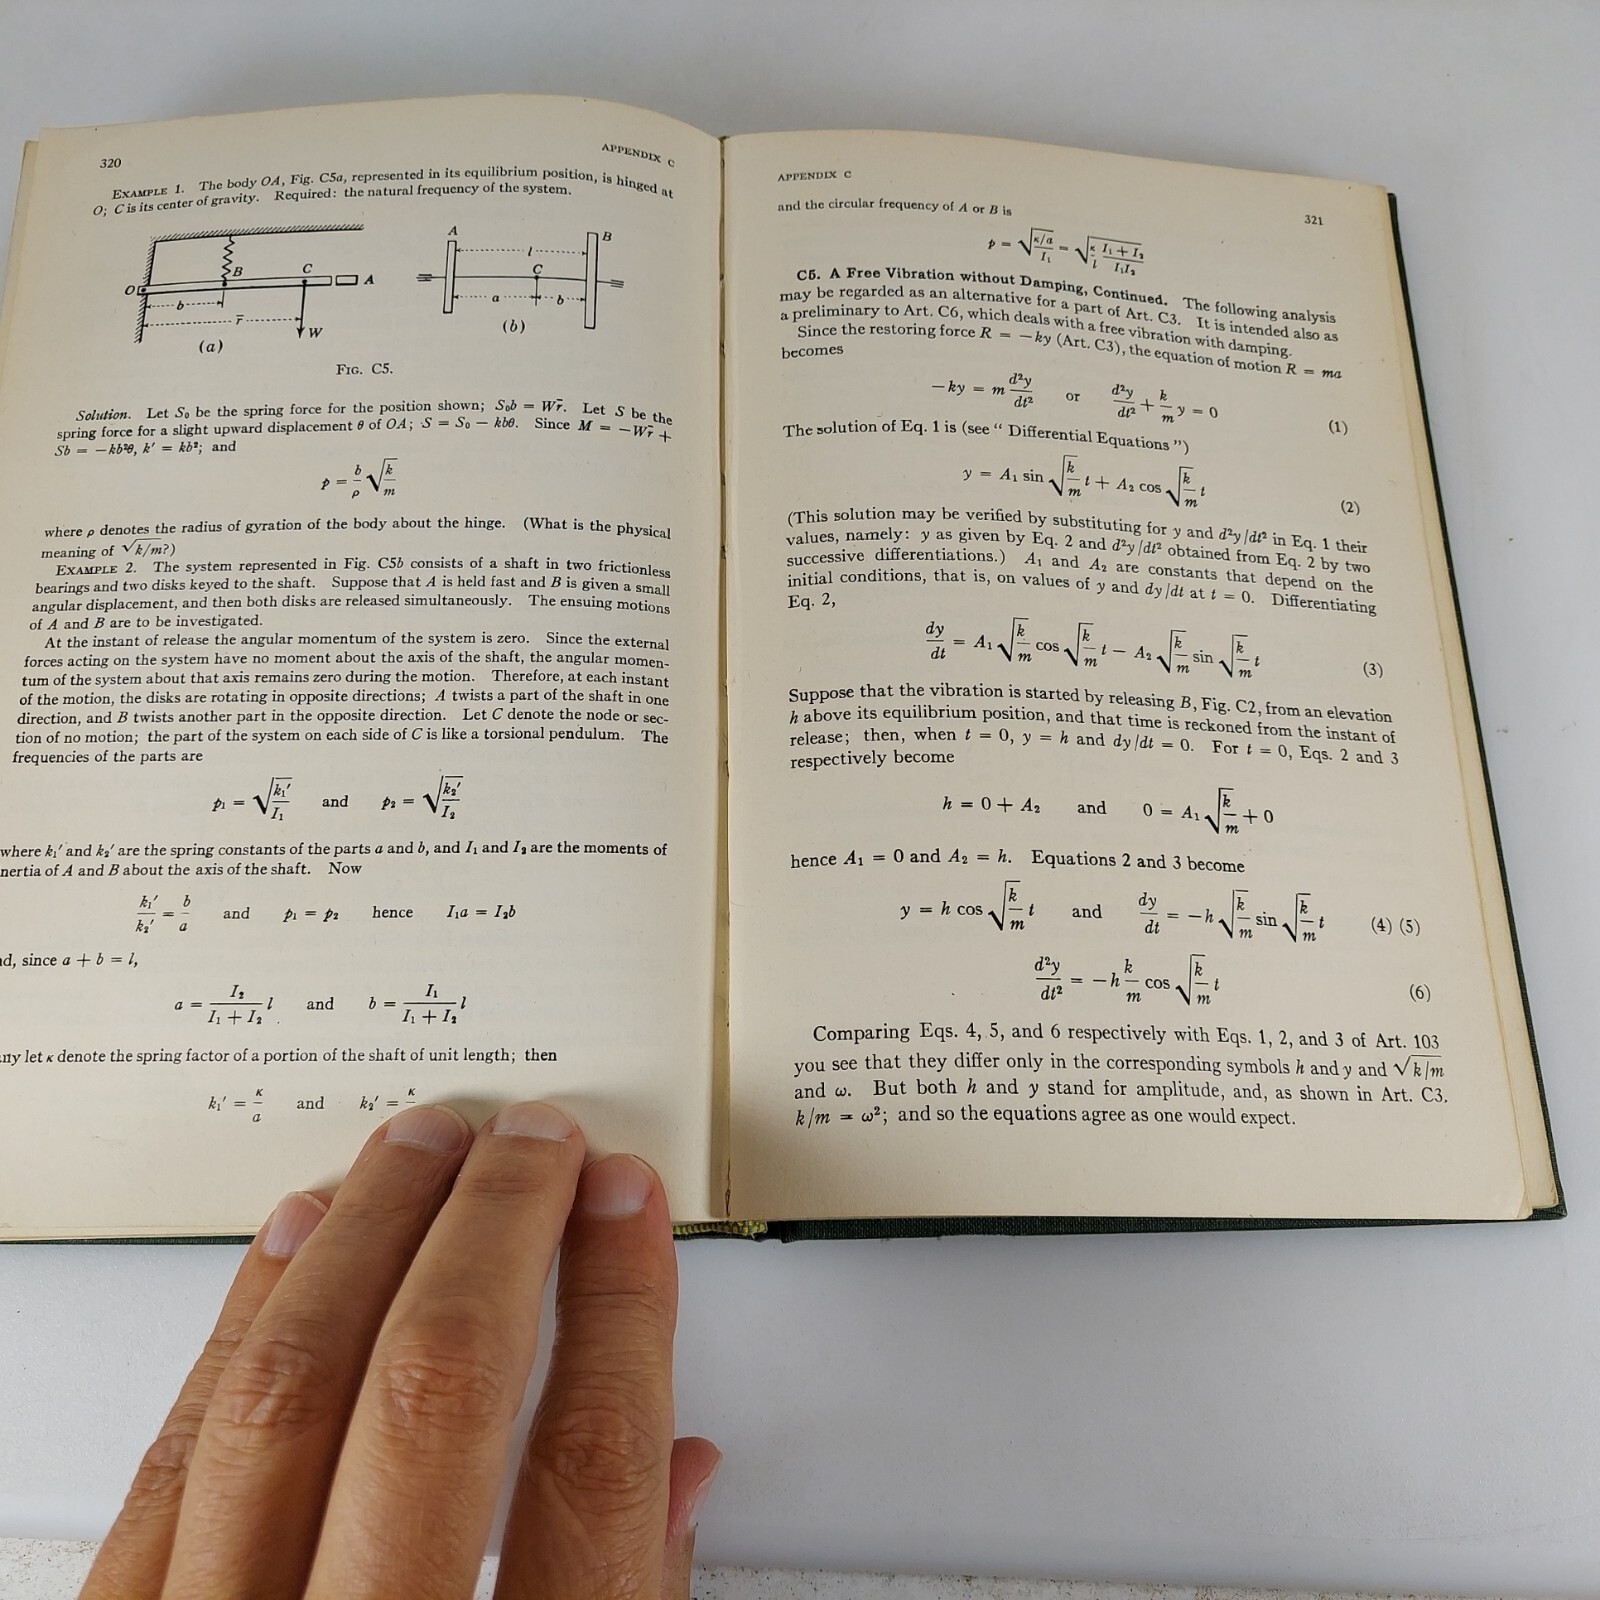 320
APPENDIX C
EXAMPLE 1. The body OA, Fig. C5a, represented in its equilibrium position, is hinged at
O; C is its center of gravity. Required: the natural frequency of the system.
O B C A
b
r̄
W
(a)
A B
l
C
a b
(b)
FIG. C5.
Solution. Let S₀ be the spring force for the position shown; S₀b = Wr̄. Let S be the
spring force for a slight upward displacement θ of OA; S = S₀ − kbθ. Since M = −Wr̄ +
Sb = −kb²θ, k′ = kb²; and
p = b/ρ √(k/m)
where ρ denotes the radius of gyration of the body about the hinge. (What is the physical
meaning of √k/m?)
EXAMPLE 2. The system represented in Fig. C5b consists of a shaft in two frictionless
bearings and two disks keyed to the shaft. Suppose that A is held fast and B is given a small
angular displacement, and then both disks are released simultaneously. The ensuing motions
of A and B are to be investigated.
At the instant of release the angular momentum of the system is zero. Since the external
forces acting on the system have no moment about the axis of the shaft, the angular momen-
tum of the system about that axis remains zero during the motion. Therefore, at each instant
of the motion, the disks are rotating in opposite directions; A twists a part of the shaft in one
direction, and B twists another part in the opposite direction. Let C denote the node or sec-
tion of no motion; the part of the system on each side of C is like a torsional pendulum. The
frequencies of the parts are
p₁ = √(k₁′/I₁) and p₂ = √(k₂′/I₂)
where k₁′ and k₂′ are the spring constants of the parts a and b, and I₁ and I₂ are the moments of
nertia of A and B about the axis of the shaft. Now
k₁′/k₂′ = b/a and p₁ = p₂ hence I₁a = I₂b
d, since a + b = l,
a = I₂/(I₁ + I₂) l and b = I₁/(I₁ + I₂) l
ny let κ denote the spring factor of a portion of the shaft of unit length; then
k₁′ = κ/a and k₂′ = κ
APPENDIX C
321
and the circular frequency of A or B is
p = √((κ/a)/I₁) = √(κ/l (I₁ + I₂)/(I₁I₂))
C5. A Free Vibration without Damping, Continued. The following analysis
may be regarded as an alternative for a part of Art. C3. It is intended also as
a preliminary to Art. C6, which deals with a free vibration with damping.
Since the restoring force R = −ky (Art. C3), the equation of motion R = ma
becomes
−ky = m d²y/dt² or d²y/dt² + k/m y = 0 (1)
The solution of Eq. 1 is (see “ Differential Equations ”)
y = A₁ sin √(k/m) t + A₂ cos √(k/m) t (2)
(This solution may be verified by substituting for y and d²y/dt² in Eq. 1 their
values, namely: y as given by Eq. 2 and d²y/dt² obtained from Eq. 2 by two
successive differentiations.) A₁ and A₂ are constants that depend on the
initial conditions, that is, on values of y and dy/dt at t = 0. Differentiating
Eq. 2,
dy/dt = A₁ √(k/m) cos √(k/m) t − A₂ √(k/m) sin √(k/m) t (3)
Suppose that the vibration is started by releasing B, Fig. C2, from an elevation
h above its equilibrium position, and that time is reckoned from the instant of
release; then, when t = 0, y = h and dy/dt = 0. For t = 0, Eqs. 2 and 3
respectively become
h = 0 + A₂ and 0 = A₁ √(k/m) + 0
hence A₁ = 0 and A₂ = h. Equations 2 and 3 become
y = h cos √(k/m) t and dy/dt = −h √(k/m) sin √(k/m) t (4) (5)
d²y/dt² = −h k/m cos √(k/m) t (6)
Comparing Eqs. 4, 5, and 6 respectively with Eqs. 1, 2, and 3 of Art. 103
you see that they differ only in the corresponding symbols h and y and √k/m
and ω. But both h and y stand for amplitude, and, as shown in Art. C3,
k/m = ω²; and so the equations agree as one would expect.